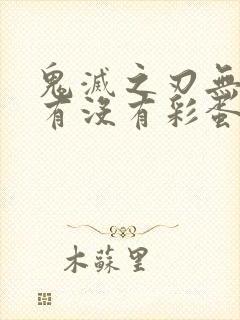 鬼滅之刃無
有沒有彩蛋
木蘇里